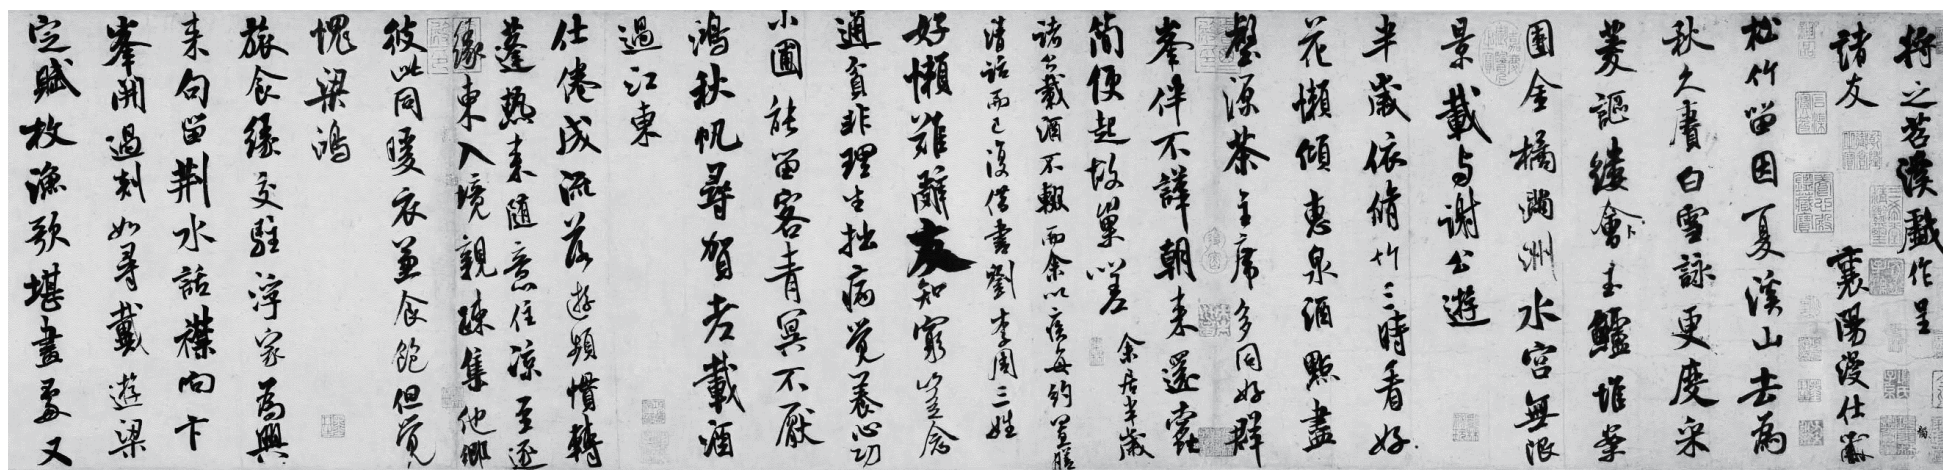 將之苕溪戲作呈
諸友
襄陽漫仕黻
松竹留因夏溪山去為
秋久賡白雪詠更度采
菱謳縷會卜玉鱸堆案
團金橘滿洲水宮無限
景載与謝公遊
半歲依脩竹三時看好
花懶傾惠泉酒點盡
壑源茶主席多同好群
峯伴不譁朝来還蠹
簡便起故巢嗟
余居半歲
諸公載酒不輟而余以疾每約置膳
清話而已復借書劉李周三姓
好懶難辭友知窮豈念
通貧非理生拙病覺養心功
小圃能留客青冥不厭
鴻秋帆尋賀老載酒
過江東
仕倦成流落遊頻慣轉
蓬熱来隨意住涼至逐
緣東入境親疎集他鄉
彼此同暖衣兼食飽但覺
愧梁鴻
旅食緣交駐浮家為興
来句留荊水話襟向卞
峯開過剡如尋戴遊梁
定賦枚漁歌堪畫處又